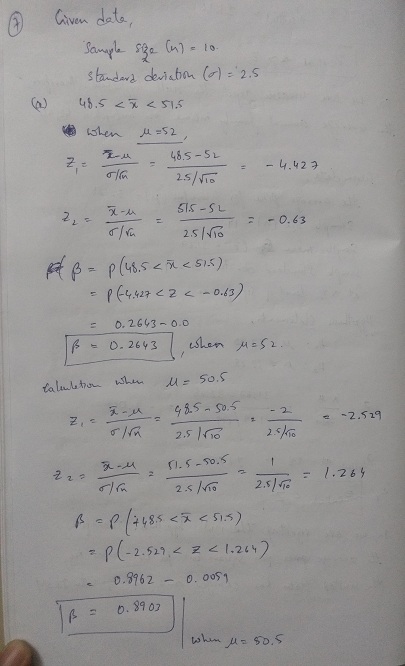 7 Given data,
Sample size (n) = 10.
Standard deviation (σ) = 2.5
(a) 48.5 < x̄ < 51.5
when μ=52,
Z₁ = (x̄-μ)/(σ/√n) = (48.5-52)/(2.5/√10) = -4.427
Z₂ = (x̄-μ)/(σ/√n) = (51.5-52)/(2.5/√10) = -0.63
β = P(48.5 < x̄ < 51.5)
= P(-4.427 < Z < -0.63)
= 0.2643-0.0
β = 0.2643, when μ=52.
Calculation when μ = 50.5
Z₁ = (x̄-μ)/(σ/√n) = (48.5-50.5)/(2.5/√10) = -2/(2.5/√10) = -2.529
Z₂ = (x̄-μ)/(σ/√n) = (51.5-50.5)/(2.5/√10) = 1/(2.5/√10) = 1.264
β = P(48.5 < x̄ < 51.5)
= P(-2.529 < Z < 1.264)
= 0.8962 - 0.0059
β = 0.8903
when μ = 50.5